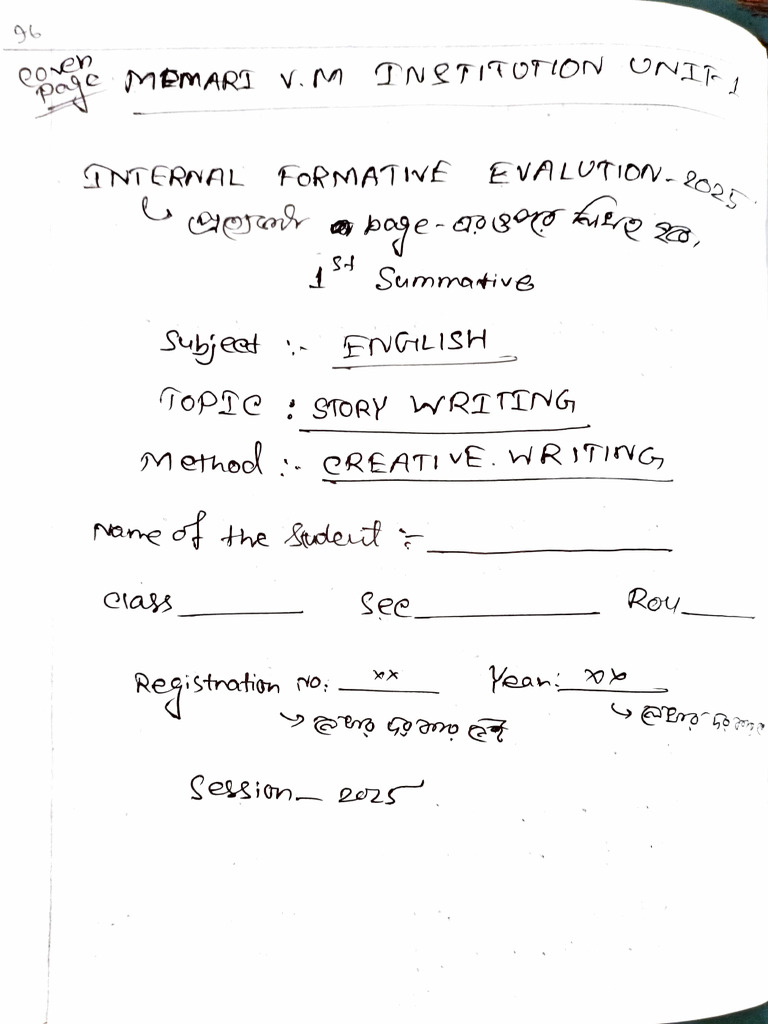 96
cover page
MEMARI V.M INSTITUTION UNIT-1
INTERNAL FORMATIVE EVALUTION-2025
প্রত্যেকটি page-এর ওপরে লিখতে হবে,
1st Summative
Subject :- ENGLISH
TOPIC : STORY WRITING
Method :- CREATIVE. WRITING
Name of the Student :-
Class Sec Roll
Registration NO: xx Year: xx
লেখার দরকার নেই লেখার দরকার
Session- 2025